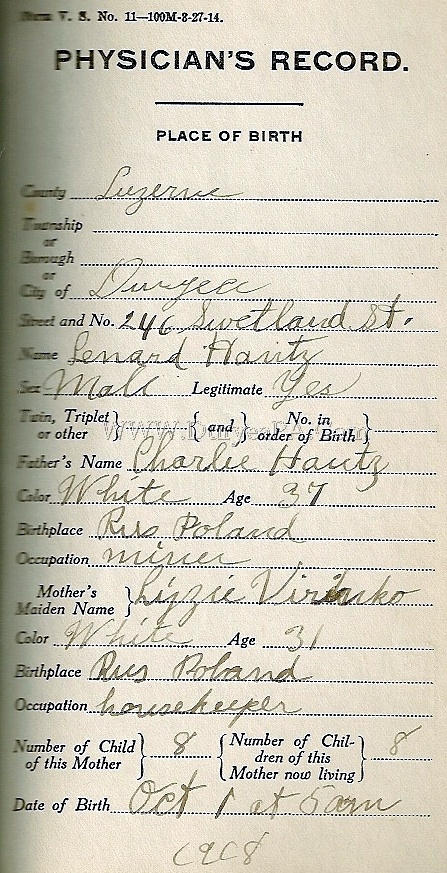 Form V. S. No. 11—100M-8-27-14.
PHYSICIAN'S RECORD.
PLACE OF BIRTH
County Luzerne
Township
or
Borough
or
City of Duryea
Street and No. 246 Swetland St.
Name Lenard Hautz
Sex Male Legitimate Yes
Twin, Triplet or other } { and } No. in order of Birth }
WWW.DuryeaPA.com
Father's Name Charlie Hautz
Color White Age 37
Birthplace Rus Poland
Occupation miner
Mother's Maiden Name } Lizzie
Color White Age 31
Birthplace Rus Poland
Occupation housekeeper
Number of Child of this Mother } 8 { Number of Children of this Mother now living } 8
Date of Birth Oct 1 at 5 am
1918